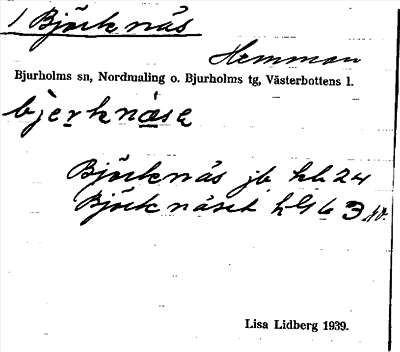 1 Björknäs
Hemman
Bjurholms sn, Nordmaling o. Bjurholms tg, Västerbottens l.
bjerknäse
Björknäs jb hl 24
Björknäset hl 63
Lisa Lidberg 1939.